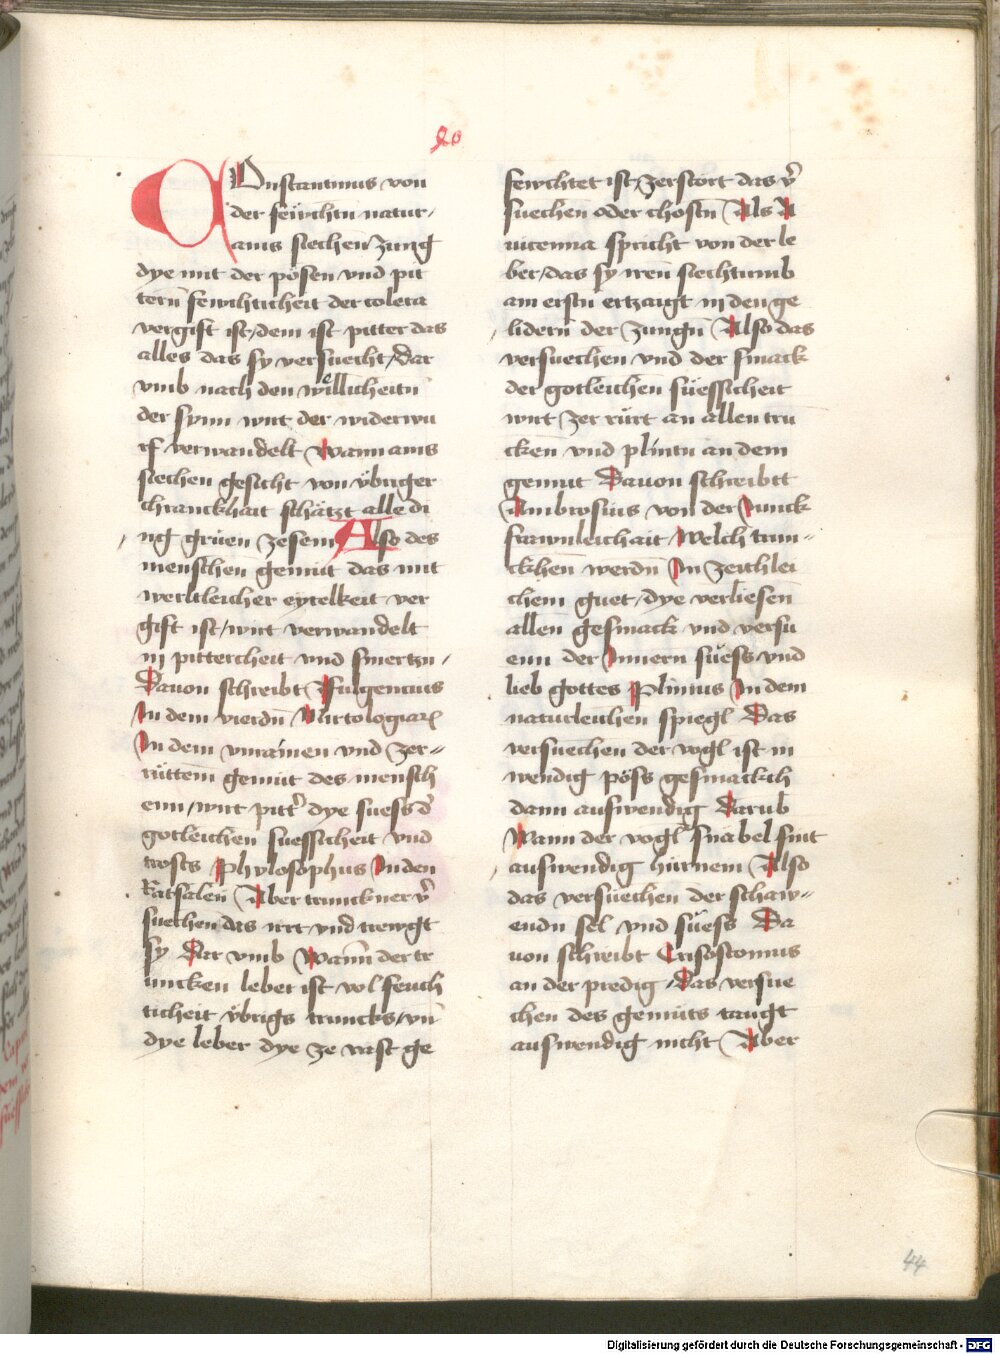 20
COnstantinus von
der feẅchtn natur /
ains siechen zung
dye mit der pösen vnd pit
tern fewchticheit der colera
vergift ist / dem ist pitter das
alles das sy versuecht / Dar
vmb nach den willicheitn
der synn wirt der widerwu
rf verwandelt Wann ains
siechen gesicht von vbriger
chranckhait schätzt alle di
ng grüen zesein Also des
menschen gemüt das mit
werltleicher eytelkeit ver
gift ist / wirt verwandelt
in pittercheit vnd smertzn /
Dauon schreibt Fulgencius
In dem vierdn Mitologiar
In dem vnrainen vnd zer=
rüttem gemüt des mensch
enn / wirt pitt dye suess d
gotleichen suessicheit vnd
trosts Phylosophus In den
Ratsalen Aber trunckner v
suechen das irrt vnd trewgt
sy Dar vmb Wann der tr
uncken leber ist vol feuch
ticheit vbrigs truncks / vn
dye leber dye ze vast ge
fewchtet ist / zerstört das v
suechen oder chostn Als A
uicenna spricht von der le
ber / das sy iren siechtumb
am erstn ertzaigt in den ge
lidern der zungn Also das
versuechen vnd der smack
der gotleichen süessicheit
wirt zer rürt an allen tru
cken vnd plintn an dem
gemüt Dauon schreibtt
Ambrosius von der Junck
frawnleichait Welch trun=
ckhen werdn In zeichlei
chem guet / dye verliesen
allen gesmack vnd versu
enn der Innern süess vnd
lieb gottes Plinius In dem
naturleichen spiegl Das
versuechen der vogl ist in
wendig pöss gesmackch
dann auswendig Darub
Wann der vogl snabel sint
auswendig hürnein Also
das versuechen der schaw=
endn sel vnd süess Da
uon schreibt Crisostomus
an der predig / Das versue
chen des gemüts taugt
auswendig nicht Aber
44
Digitalisierung gefördert durch die Deutsche Forschungsgemeinschaft - DFG